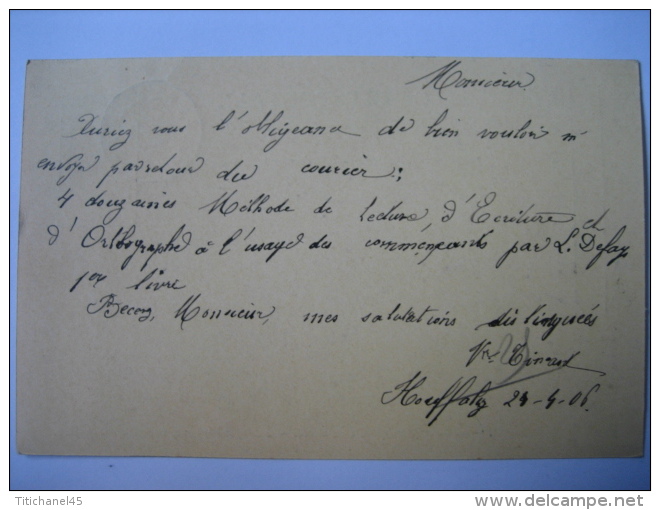 Monsieur
Auriez vous l'obligeance de bien vouloir m'
envoyer par retour du courier:
4 douzaines Méthode de lecture, d'Ecriture et
d'Orthographe à l'usage des commençants par L. Defays
1er livre
Recevez, Monsieur, mes salutations distinguées
Houffalize 24-4-06.
Titichanel45
www.delcampe.net